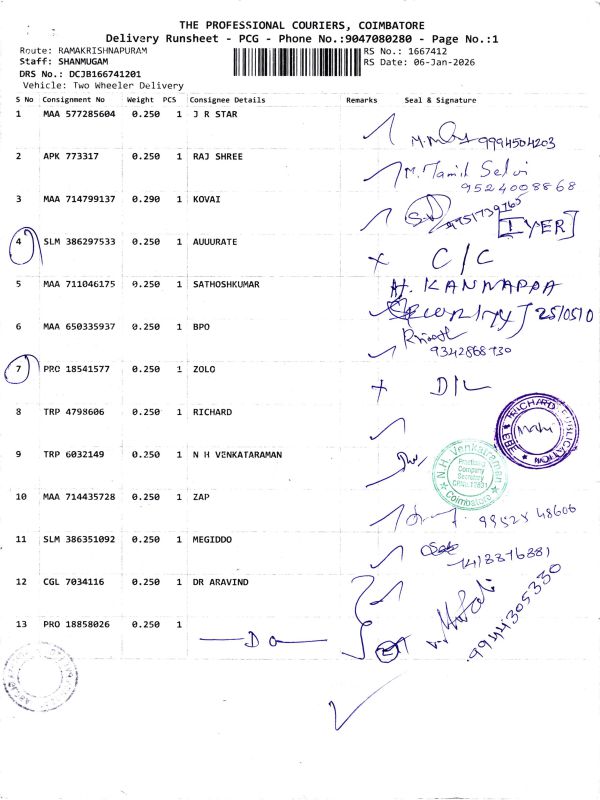 THE PROFESSIONAL COURIERS, COIMBATORE
Delivery Runsheet - PCG - Phone No.:9047080280 - Page No.:1
Route: RAMAKRISHNAPURAM
RS No.: 1667412
Staff: SHANMUGAM
RS Date: 06-Jan-2026
DRS No.: DCJB166741201
Vehicle: Two Wheeler Delivery
S No Consignment No Weight PCS Consignee Details Remarks Seal & Signature
1 MAA 577285604 0.250 1 J R STAR
9994504203
2 APK 773317 0.250 1 RAJ SHREE
M. Tamil Selvi
9524008868
3 MAA 714799137 0.290 1 KOVAI
[IYER]
4 SLM 386297533 0.250 1 AUUURATE
C/C
5 MAA 711046175 0.250 1 SATHOSHKUMAR
KANNAPPA
25/0510
6 MAA 650335937 0.250 1 BPO
9342868730
7 PRO 18541577 0.250 1 ZOLO
D/L
8 TRP 4798606 0.250 1 RICHARD
RICHARD PUBLICATION
9 TRP 6032149 0.250 1 N H VENKATARAMAN
N.H. Venkataraman
Practising
Company
Secretary
Coimbatore
10 MAA 714435728 0.250 1 ZAP
99528 48606
11 SLM 386351092 0.250 1 MEGIDDO
12 CGL 7034116 0.250 1 DR ARAVIND
9944305330
13 PRO 18858026 0.250 1